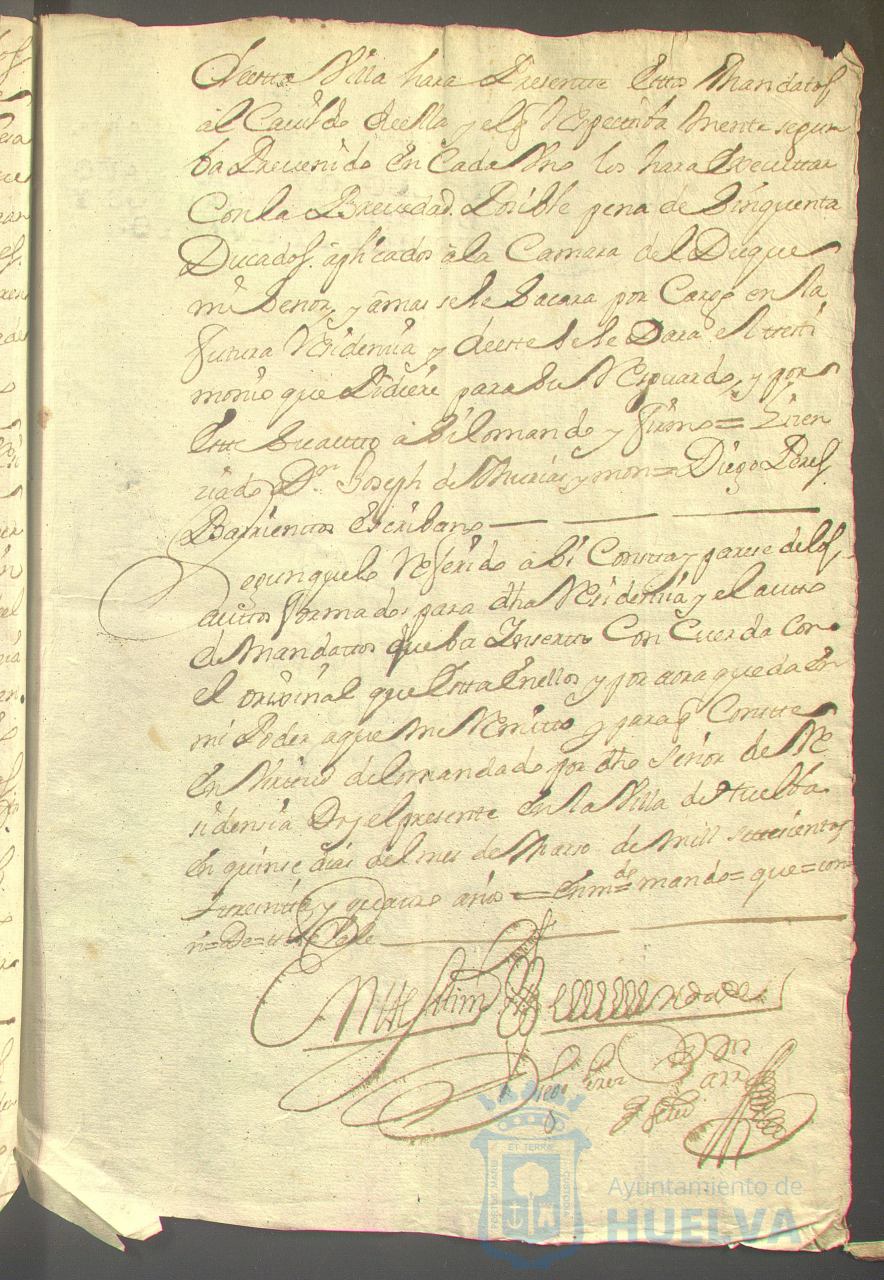 de esta Villa hara Presente esttos Mandatos
al Cavildo de ella y el qe Respectiba mente segun
ba Prevenido en Cada Uno los hara executtar
Con la Brevedad Posible pena de Sinquenta
Ducados aplicados à la Camara del Duque
mi Señor, y àmas se le sacara por Cargo en la
futura Residensia y de este se le Dara el testi
monio que Pidiere para su Resguardo, y por
Este su autto asi lo mando y firmo = Lisen
ciado Dn Joseph de Murias y mon = Diego Peres
Barrientos Escribano
Segun que lo Referido asi Consta y parese de los
auttos formados para dha Residensia y el autto
de Mandattos que ba Inserto Con Cuerda Con
el original que esta en ellos y por aora queda en
mi Poder a que me Remitto y para qe Conste
en Virtud de lo mandado por dho Señor de Re
sidensia Doy el presente en la Villa de Huelba
en quinse dias del mes de Marso de mill settesientos
treintta y quatro años = enmdo = mando = que = con=
n = De = vale
En testim de verdad
Diego Perez Barr
Ayuntamiento de
HUELVA
PORTUS MARIS
ET TERRÆ
CUSTODIA